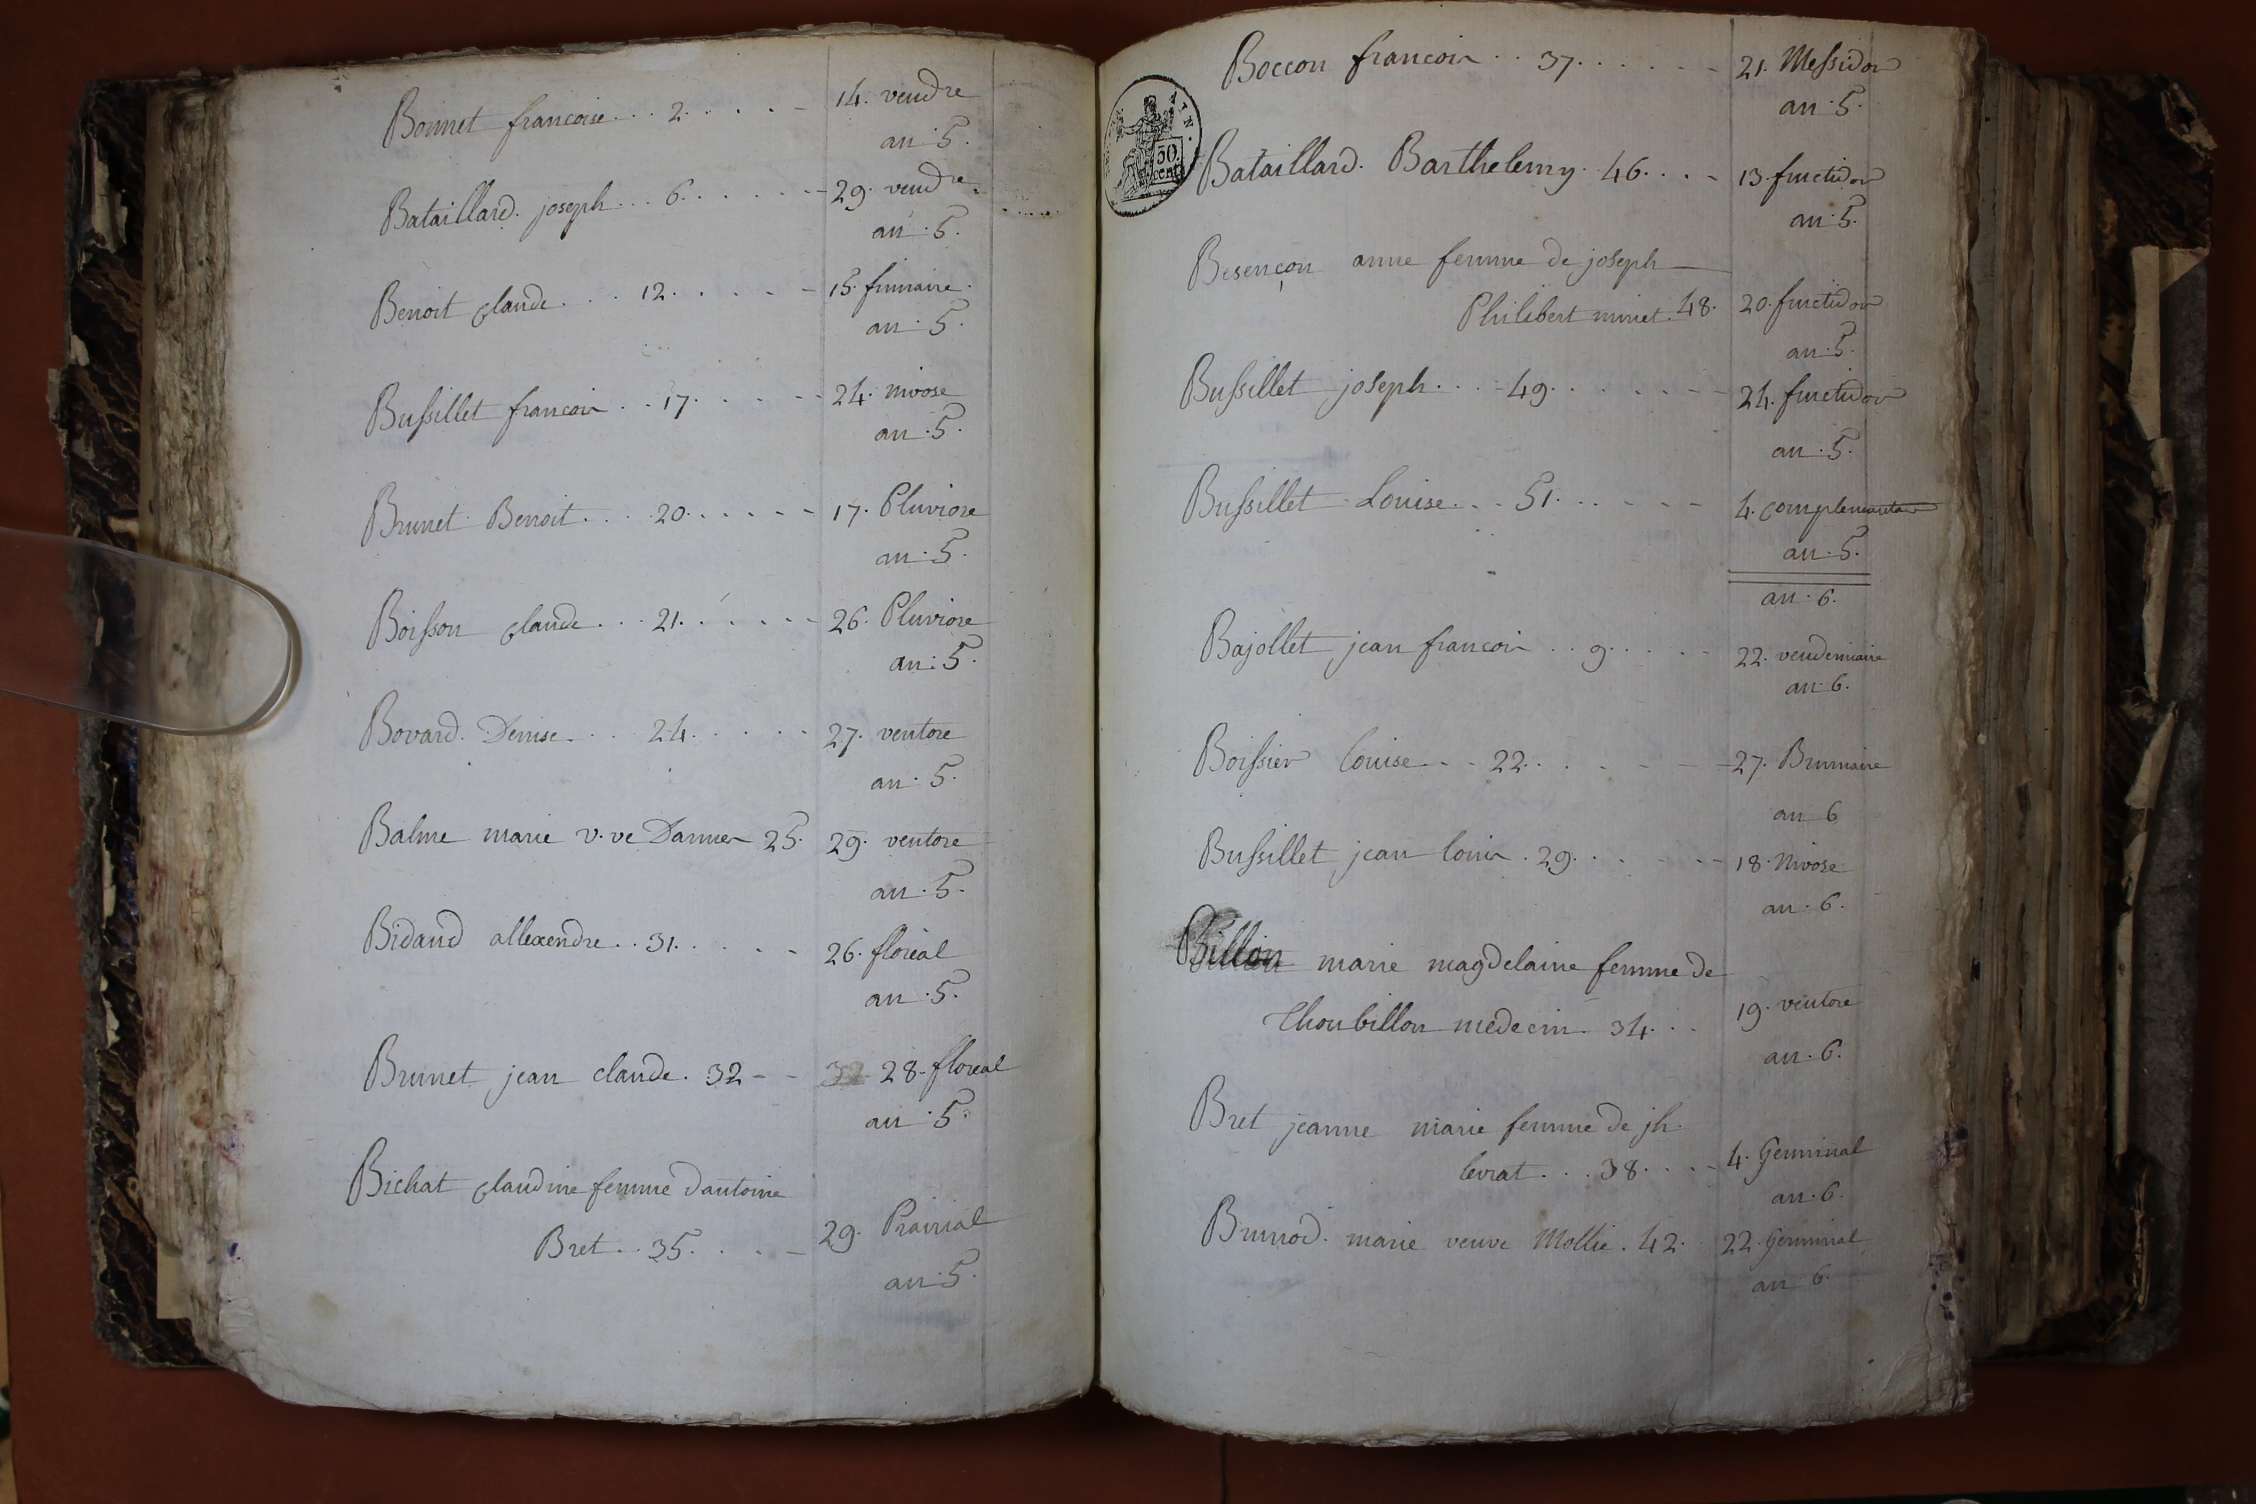 Bonnet francoise . . . 2 . . . . . 14. vendre
an . 5.
Bataillard. joseph . . . 6 . . . . . . 29. vendre.
an . 5.
Benoit claude . . . 12 . . . . . 15. frimaire.
an . 5.
Bussillet francois . . 17 . . . . . 24. nivose
an . 5.
Brunet Benoit . . . 20 . . . . . . 17. Pluviose
an . 5.
Boisson claude . . . 21 . . . . . . 26. Pluviose
an . 5.
Bovard. Denise . . . 24 . . . . . 27. ventose
an . 5.
Balme marie v.ve Darmer 25. 29. ventose
an . 5.
Bidaud allexendre . . 31 . . . . . 26. floreal
an . 5.
Brunet jean claude. 32 - - 28. floreal
an . 5.
Bichat claudine femme dantoine
Bret . . 35 . . . . 29. Prairial
an . 5.
50
cent
Boccon francois . . 37 . . . . . . 21. Messidor
an . 5.
Bataillard. Barthelemy. 46 . . . 13. fructidor
an . 5.
Besençon anne femme de joseph
Philibert minet. 48. 20. fructidor
an . 5.
Bussillet joseph . . . 49 . . . . . . 24. fructidor
an . 5.
Bussillet Louise . . . 51 . . . . . 4. complementair
an . 5.
an . 6.
Bajollet jean francois . . 9 . . . . . 22. vendemiaire
an 6.
Boissier louise . . . 22 . . . . . . 27. Brumaire
an 6
Bussillet jean louis . 29 . . . . . 18. Nivose
an . 6.
Billon marie magdelaine femme de
Thoubillon medecin. 34 . . . 19. ventose
an . 6.
Bret jeanne marie femme de jh.
levrat . . . 38 . . . . 4. Germinal
an . 6.
Brunod. marie veuve Mollie . 42. 22. Germinal
an 6.